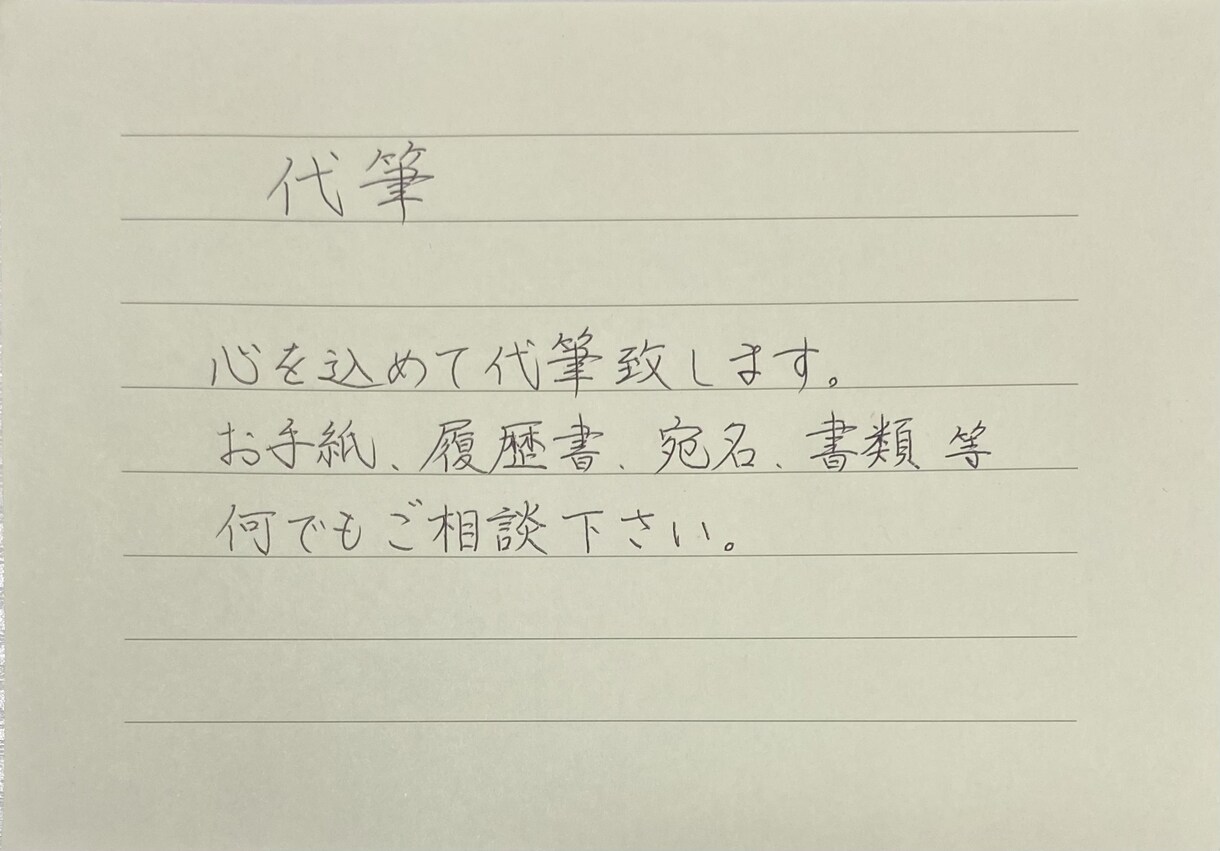 代筆
心を込めて代筆致します。
お手紙、履歴書、宛名、書類 等
何でもご相談下さい。